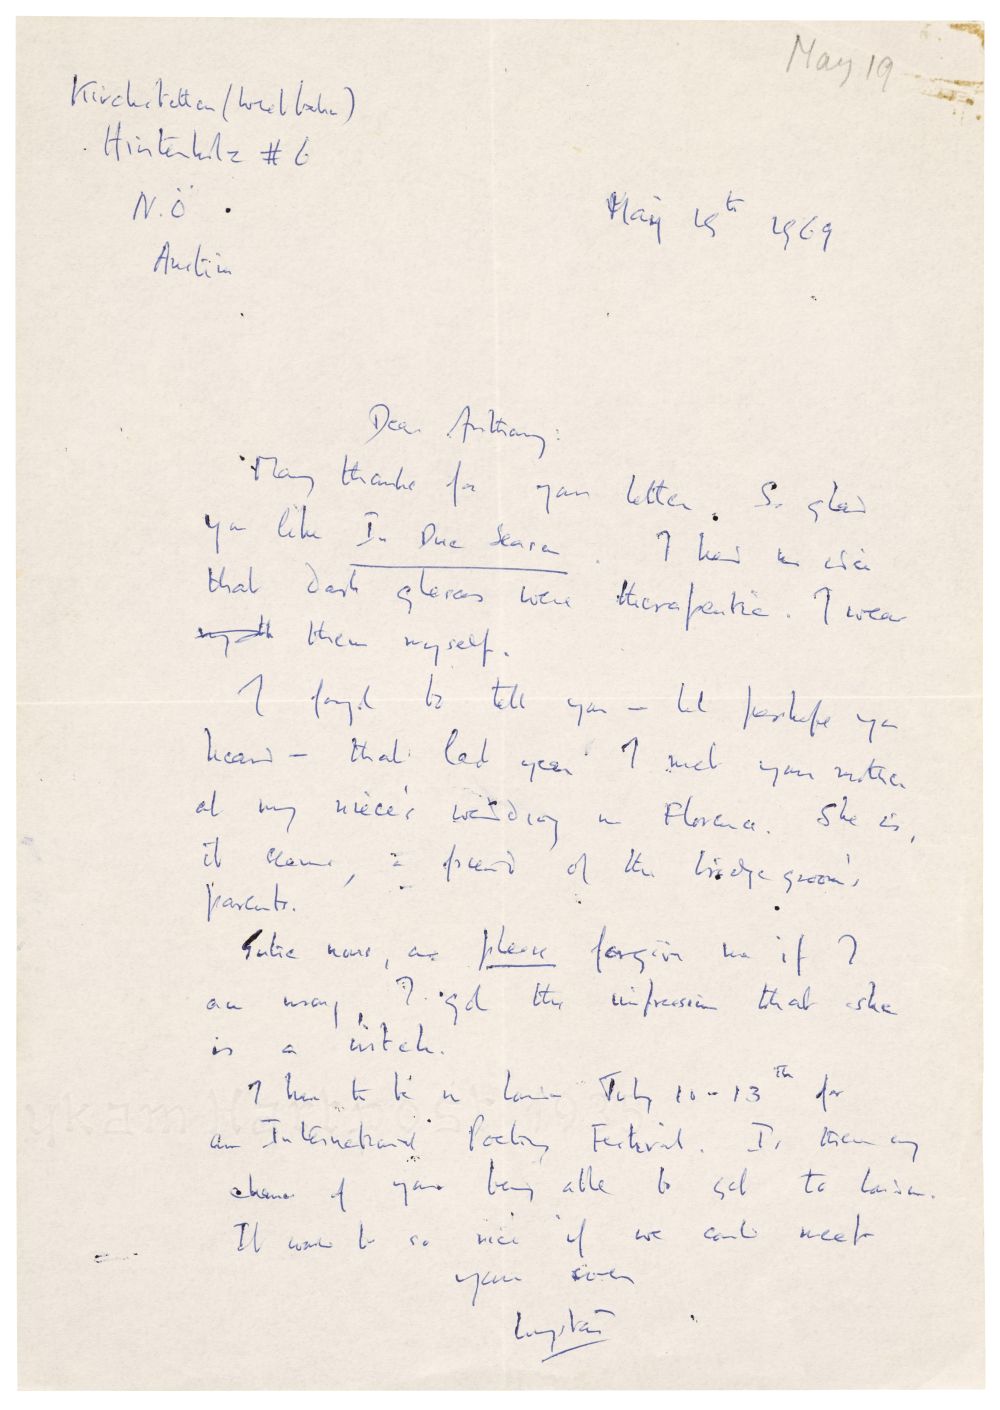 May 19
Kirchstetten (Westbahn)
Hinterholz # 6
N.Ö.
Austria
May 19th 1969
Dear Anthony:
Many thanks for your letter. So glad
you like In Due Season. I had no idea
that dark glasses were therapeutic. I wear
them myself.
I forgot to tell you – but perhaps you
heard – that last year I met your mother
at my niece's wedding in Florence. She is,
it seems, a friend of the bridge groom's
parents.
Entre nous, and please forgive me if I
am wrong, I got the impression that she
is a witch.
I have to be in London July 10-13th for
an International Poetry Festival. Is there any
chance of your being able to get to London.
It would be so nice if we could meet
yours ever
Wystan